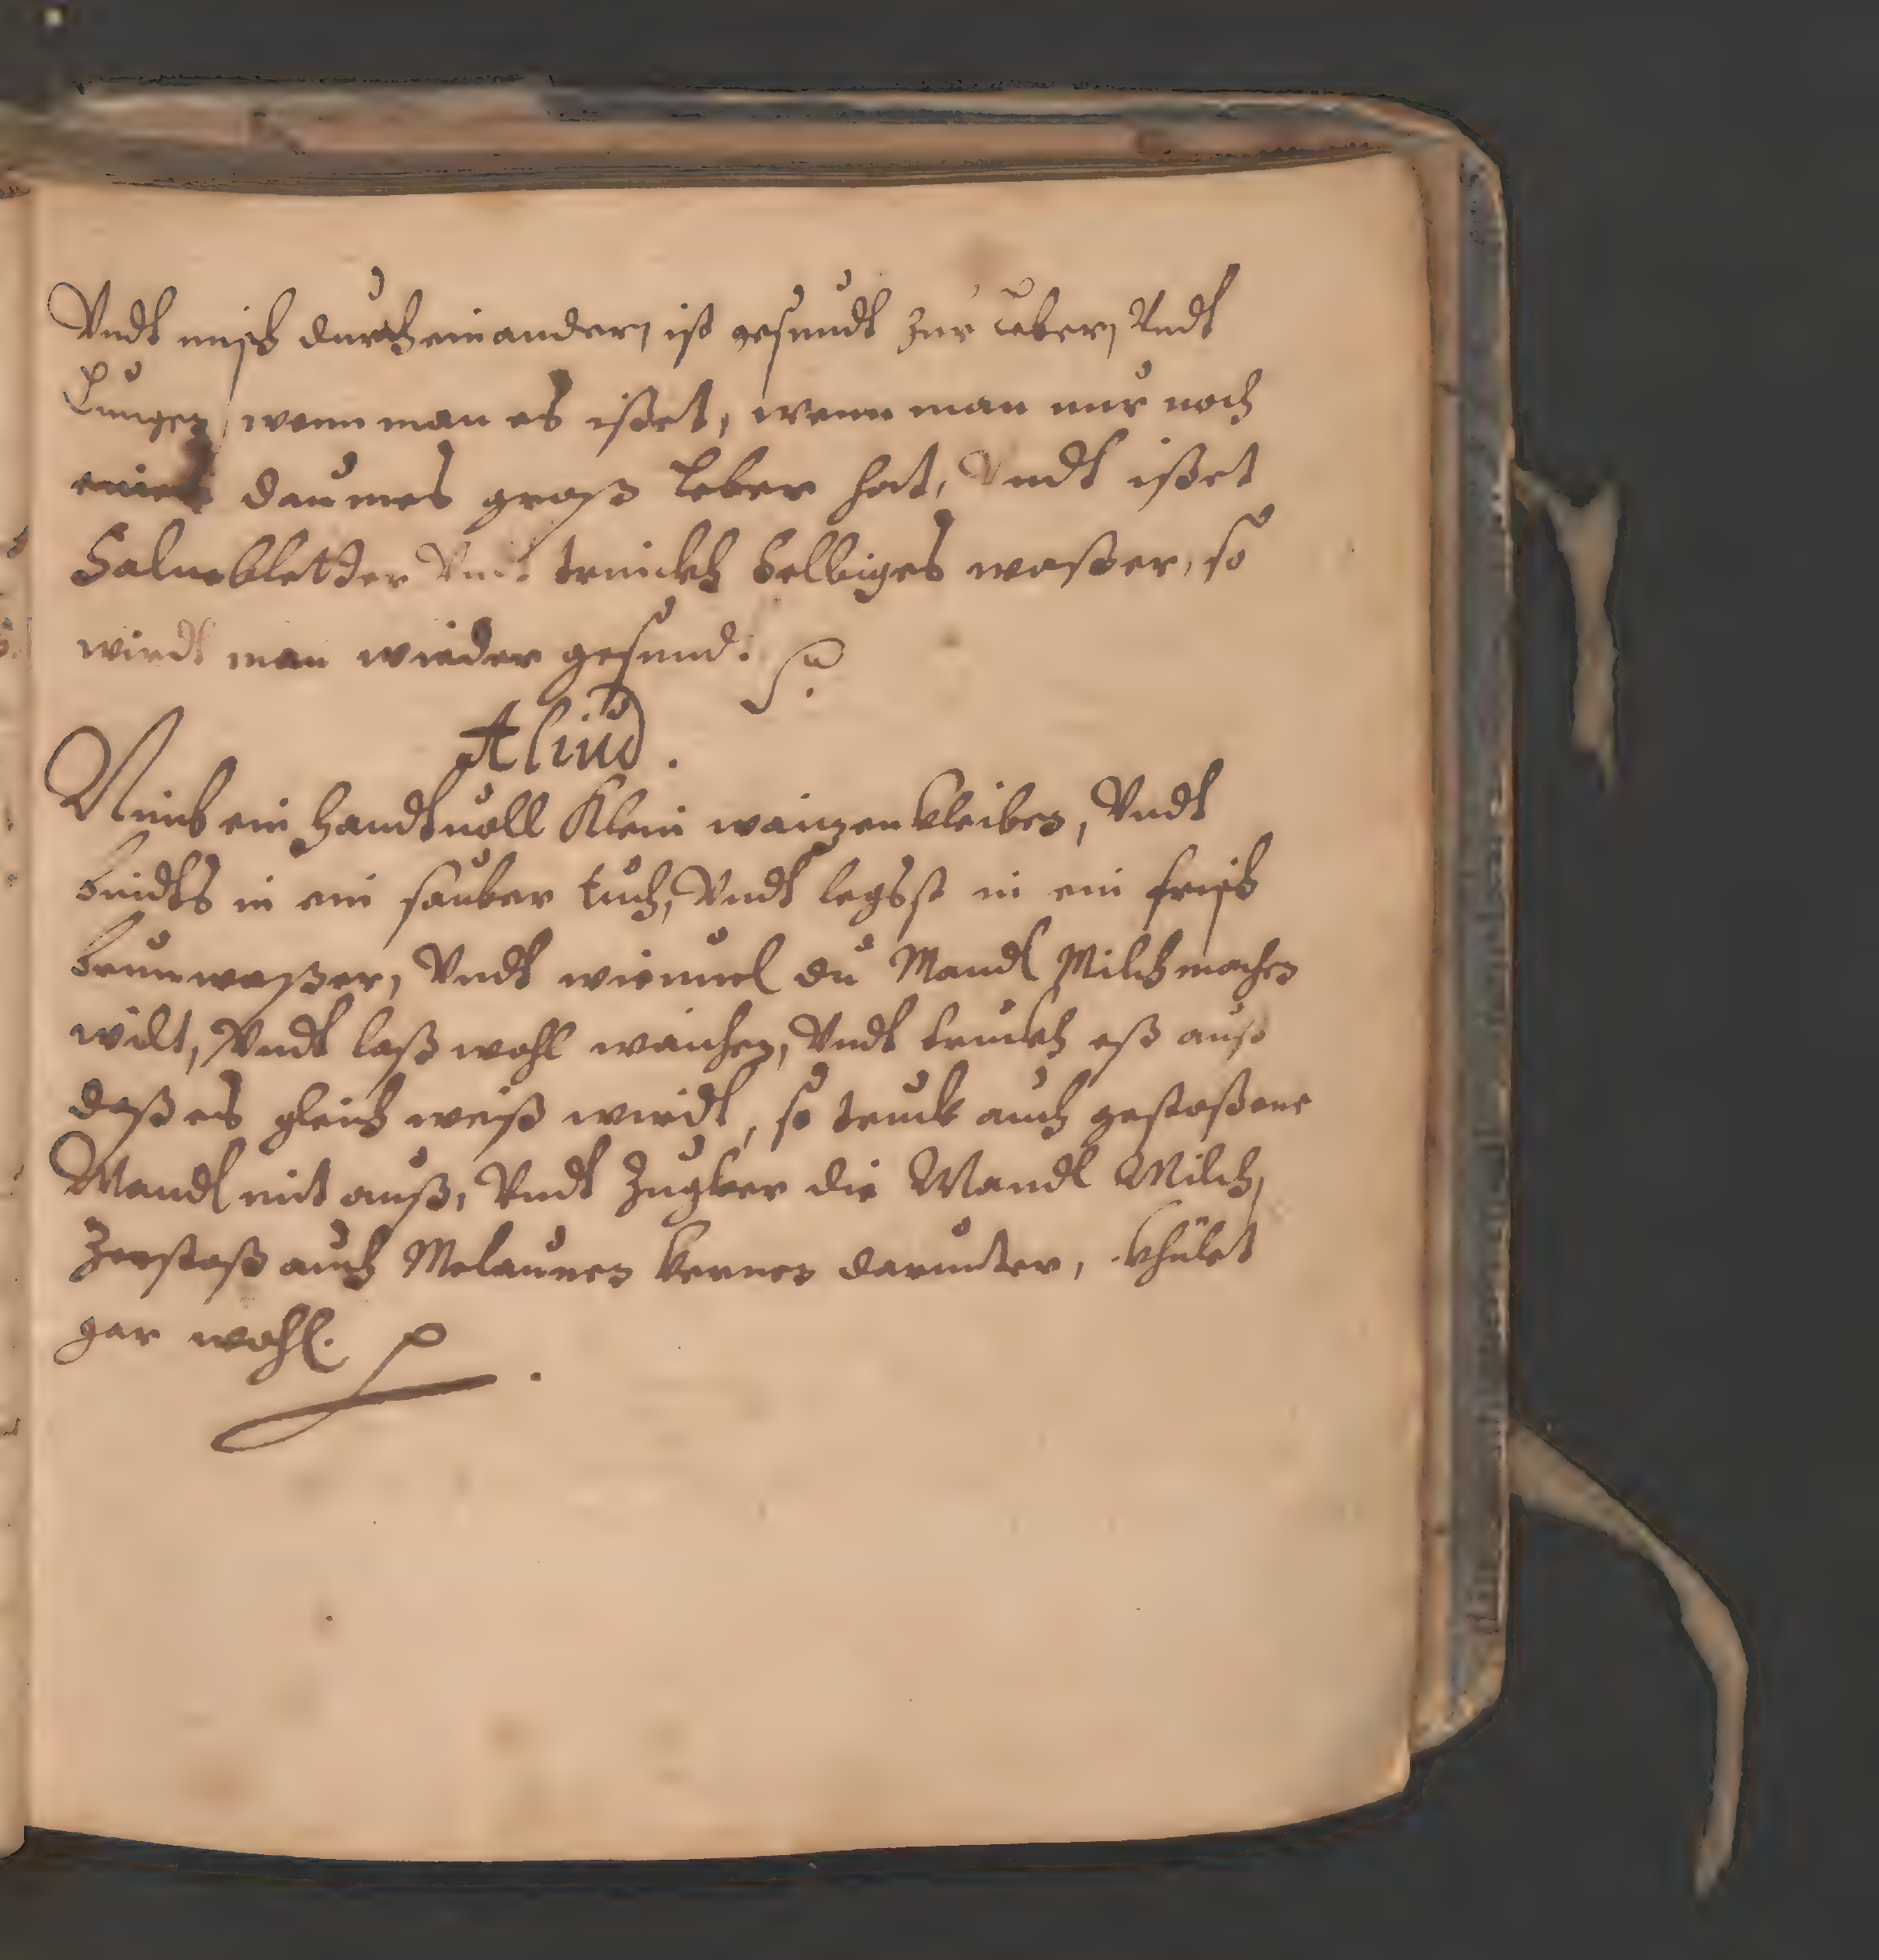 Vndt misch durcheinander, ist gesundt zur Leber, Vndt
Lungen, wenn man es ißet, wenn man nur noch
eines daumes groß Leber hat, Vndt ißet
Saluebletter Vndt trinckh selbiges waßer, so
wirdt man wieder gesund.
Aliud.
Nimb ein handtuoll Klein waizen kleiben, Vndt
bindts in ein sauber tuch, Vndt legsst in ein frisch
brunwaßer, Vndt wieuiel du Mandl Milch machen
wilt, Vndt laß wohl waichen, Vndt truckh eß auß
daß es gleich weiß wirdt, so truck auch gestoßene
Mandl mit auß, Vndt Zugker die Mandl Milch,
Zerstoß auch Melaunen kernen darunter, khület
gar wohl.